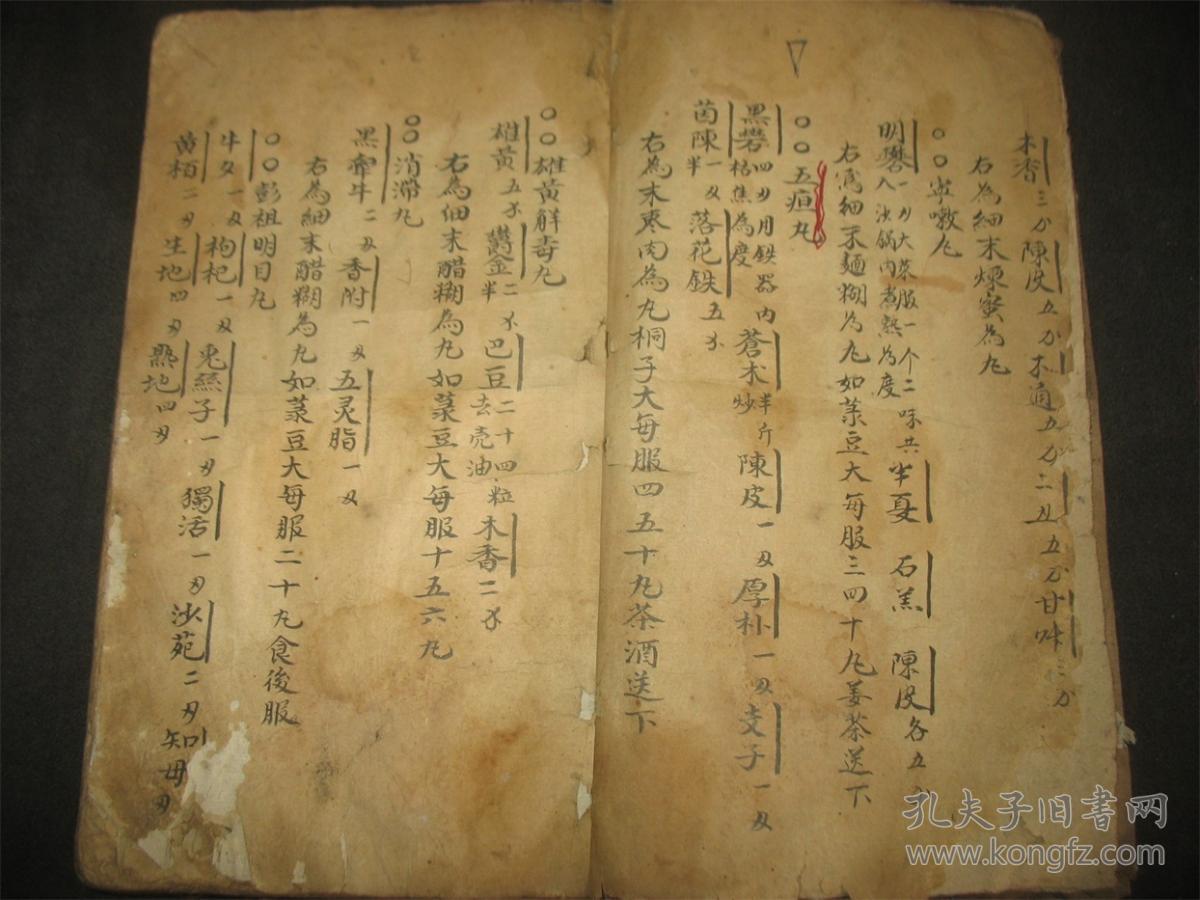 木香三分陳皮五分木通五分二丑五分甘味三分
右為細末煉蜜為丸
○○寧嗽丸
明礬一刄大菜服一个二味共入浊锅內煮熟为度半夏 石羔 陳皮各五分
右為細末麺糊為丸如菉豆大每服三四十丸姜茶送下
○○五疸丸
黑礬四刄用鉄器內枯焦為度蒼术半斤炒陳皮一刄厚朴一刄支子一刄
茵陳一刄半落花鉄五才
右為末枣肉為丸桐子大每服四五十丸茶酒送下
○○雄黃解毒丸
雄黃五才鬱金二才半巴豆二十四粒去壳油木香二才
右為细末醋糊為丸如菉豆大每服十五六丸
○○消滯丸
黑牵牛二刄香附一刄五灵脂一刄
右為細末醋糊為丸如菉豆大每服二十丸食後服
○○彭祖明目丸
牛夕一刄枸杞一刄兎絲子一刄獨活一刄沙苑二刄知母刄
黃栢二刄生地四刄熟地四刄
孔夫子旧书网
www.kongfz.com